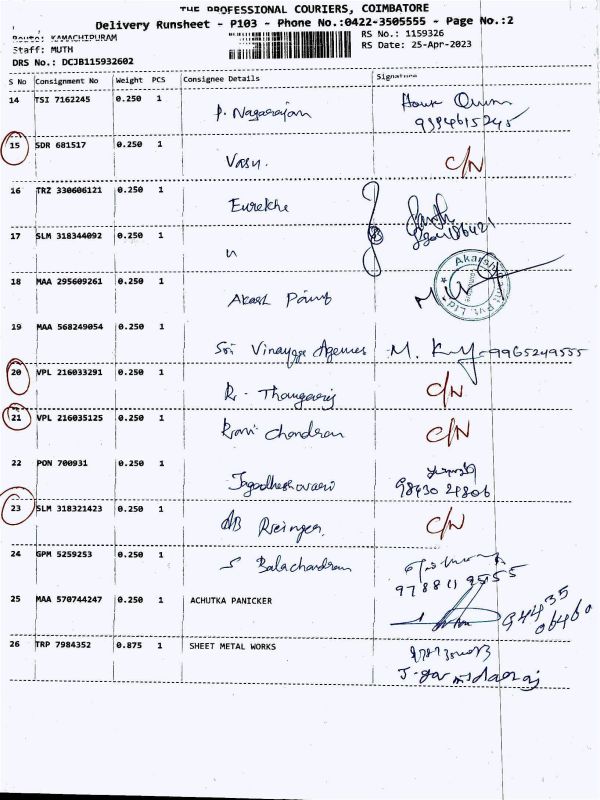 THE PROFESSIONAL COURIERS, COIMBATORE
Delivery Runsheet - P103 - Phone No.:0422-3505555 - Page No.:2
Route: KAMACHIPURAM
RS No.: 1159326
Staff: MUTH
RS Date: 25-Apr-2023
DRS No.: DCJB115932602
S No Consignment No Weight PCS Consignee Details Signature
14 TSI 7162245 0.250 1 P. Nagarajan
9394615245
15 SDR 681517 0.250 1 Vasu. C/N
16 TRZ 330606121 0.250 1 Eurekha
17 SLM 318344092 0.250 1 "
18 MAA 295609261 0.250 1 Akash Paints
19 MAA 568249054 0.250 1 Sri Vinayaga Agencies M. 9965249555
20 VPL 216033291 0.250 1 R. Thangaraj C/N
21 VPL 216035125 0.250 1 Ravi Chandran C/N
22 PON 700931 0.250 1 Jagadheshwari
98430 24806
23 SLM 318321423 0.250 1 C/N
24 GPM 5259253 0.250 1 S Balachandran
97881 19555
25 MAA 570744247 0.250 1 ACHUTKA PANICKER 94435
06460
26 TRP 7984352 0.875 1 SHEET METAL WORKS